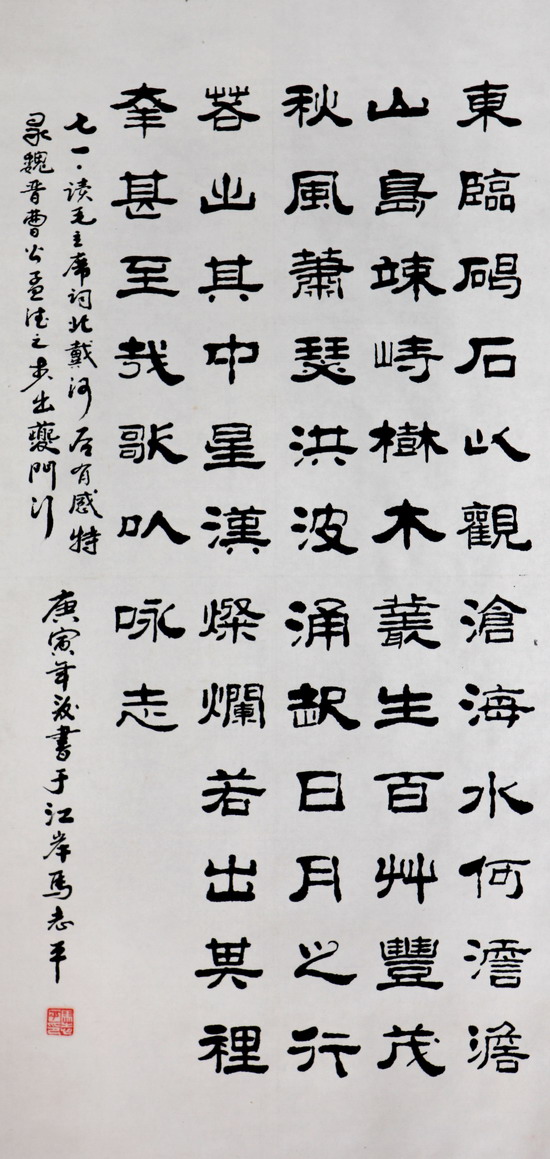 東臨碣石以觀滄海水何澹澹
山島竦峙樹木叢生百艸豐茂
秋風蕭瑟洪波涌起日月之行
若出其中星漢燦爛若出其裡
幸甚至哉歌以咏志
七一·读毛主席词北戴河后有感特
录魏晋曹公孟德之步出夔门行
庚寅年書于江岸馬志平